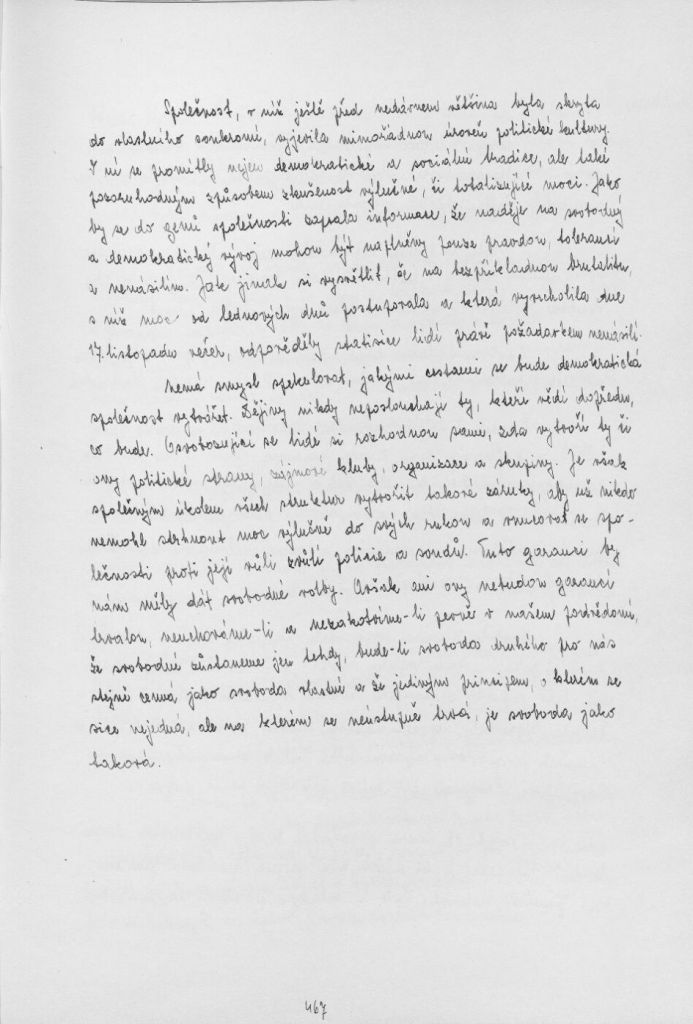 Společnost, v níž ještě před nedávnem většina byla skryta
do vlastního soukromí, vyjevila mimořádnou úroveň politické kultury.
V ní se promítly nejen demokratické a sociální tradice, ale také
pozoruhodným způsobem zkušenost výlučné, či totalizující moci. Jako
by se do genů společnosti zapsala informace, že naděje na svobodný
a demokratický vývoj mohou být naplněny pouze pravdou, tolerancí
a nenásilím. Jak jinak si vysvětlit, že na bezpříkladnou brutalitu,
s níž moc od lednových dnů postupovala a která vyvrcholila dne
17. listopadu večer, odpověděly statisíce lidí právě požadavkem nenásilí.
Nemá smysl spekulovat, jakými cestami se bude demokratická
společnost vytvářet. Dějiny nikdy neposlouchají ty, kteří vědí dopředu,
co bude. Osvobozující se lidé si rozhodnou sami, zda vytvoří ty či
ony politické strany, zájmové kluby, organizace a skupiny. Je však
společným úkolem všech struktur vytvořit takové záruky, aby už nikdo
nemohl strhnout moc výlučně do svých rukou a vnucovat se spo-
lečnosti proti její vůli zvůlí policie a soudů. Tuto garanci by
nám měly dát svobodné volby. Avšak ani ony nebudou garancí
trvalou, neuchováme-li a nezakotvíme-li pevně v našem podvědomí,
že svobodné zůstaneme jen tehdy, bude-li svoboda druhého pro nás
stejně cenná jako svoboda vlastní a že jediným principem, o kterém se
sice nejedná, ale na kterém se neústupně trvá, je svoboda jako
taková.
467